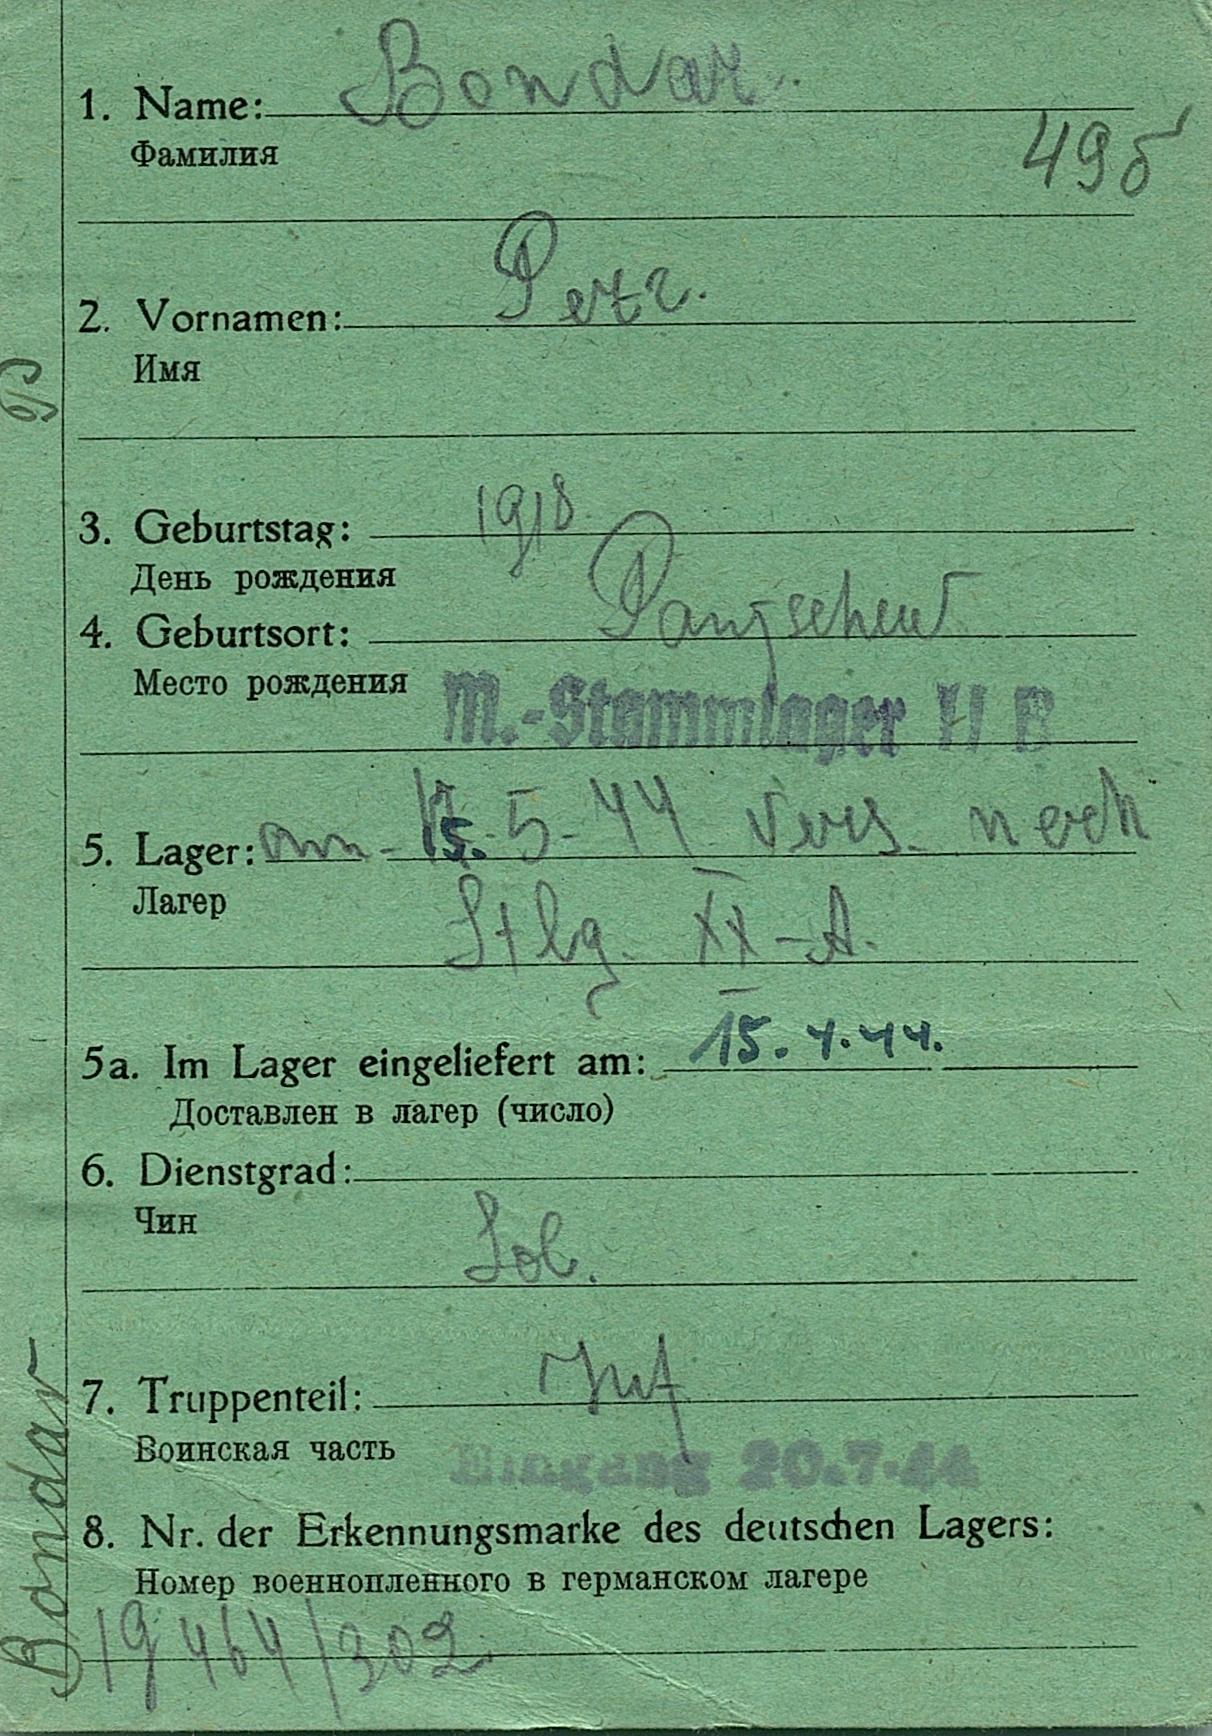 1. Name: Bondar.
Фамилия
49б
2. Vornamen: Petr.
Имя
3. Geburtstag: 1918
День рождения
4. Geburtsort:
Место рождения
M.-Stammlager II B
5. Lager: am 15.-5-44 vers. nach
Лагер
Stlg. XX-A.
5a. Im Lager eingeliefert am: 15.4.44.
Доставлен в лагер (число)
6. Dienstgrad:
Чин
Sol.
7. Truppenteil: Inf
Воинская часть
Eingang 20.7.44
8. Nr. der Erkennungsmarke des deutschen Lagers:
Номер военнопленного в германском лагере
19464/302
Bondar P